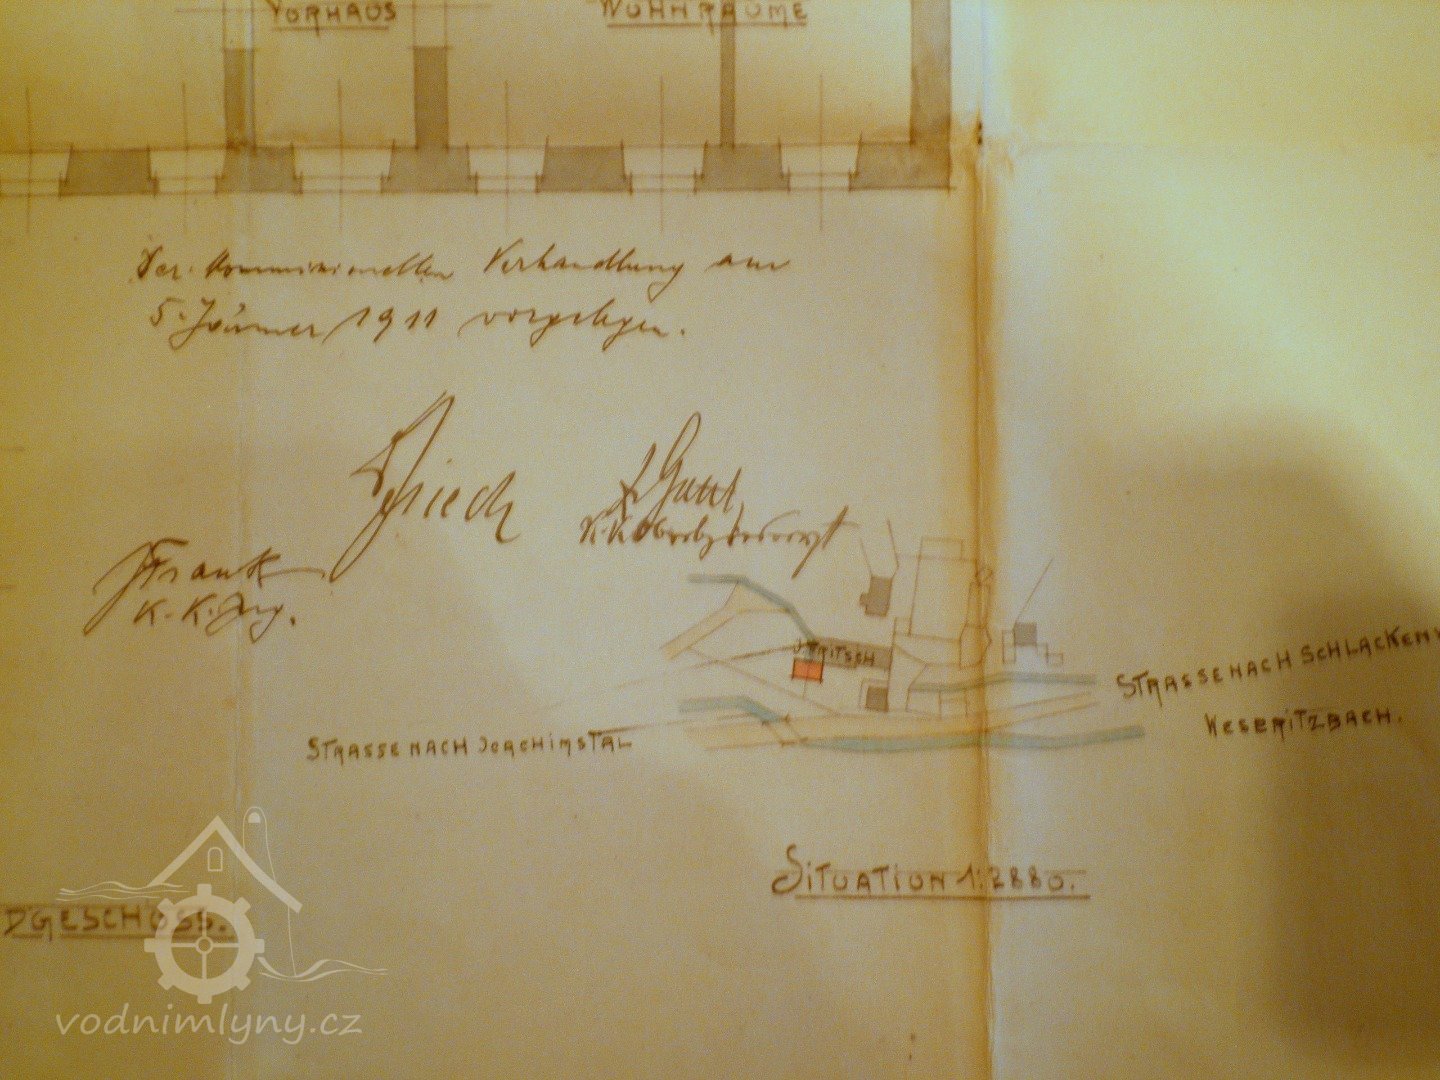 VORHAUS
WOHNRÄUME
Der kommissionellen Verhandlung am
5. Jänner 1911 vorgelegen.
Frank
K. K. Ing.
J. FRITSCH
STRASSE NACH SCHLACKENW
WESERITZBACH.
STRASSE NACH JOACHIMSTAL
SITUATION 1:2880.
DGESCHOSS.
vodnimlyny.cz